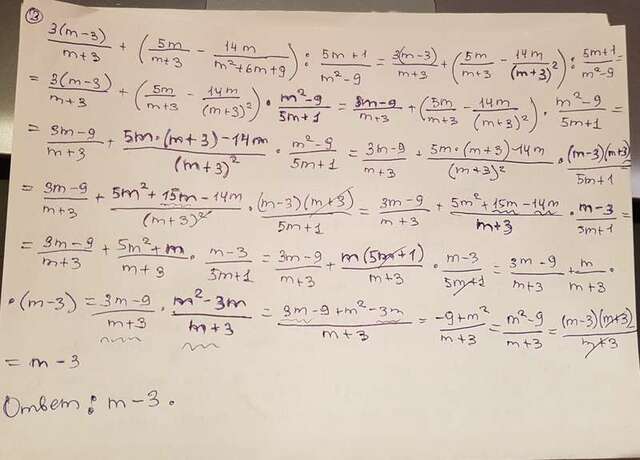 ③ 3(m-3)/(m+3) + (5m/(m+3) - 14m/(m²+6m+9)) : (5m+1)/(m²-9) = 3(m-3)/(m+3) + (5m/(m+3) - 14m/(m+3)²) : (5m+1)/(m²-9) =
= 3(m-3)/(m+3) + (5m/(m+3) - 14m/(m+3)²) · (m²-9)/(5m+1) = (3m-9)/(m+3) + (5m/(m+3) - 14m/(m+3)²) · (m²-9)/(5m+1) =
= (3m-9)/(m+3) + (5m·(m+3)-14m)/(m+3)² · (m²-9)/(5m+1) = (3m-9)/(m+3) + (5m·(m+3)-14m)/(m+3)² · (m-3)(m+3)/(5m+1)
= (3m-9)/(m+3) + (5m²+15m-14m)/(m+3)² · (m-3)(m+3)/(5m+1) = (3m-9)/(m+3) + (5m²+15m-14m)/(m+3) · (m-3)/(5m+1) =
= (3m-9)/(m+3) + (5m²+m)/(m+3) · (m-3)/(5m+1) = (3m-9)/(m+3) + m(5m+1)/(m+3) · (m-3)/(5m+1) = (3m-9)/(m+3) + m/(m+3) ·
· (m-3) = (3m-9)/(m+3) · (m²-3m)/(m+3) = (3m-9+m²-3m)/(m+3) = (-9+m²)/(m+3) = (m²-9)/(m+3) = (m-3)(m+3)/(m+3)
= m-3
Ответ: m-3.